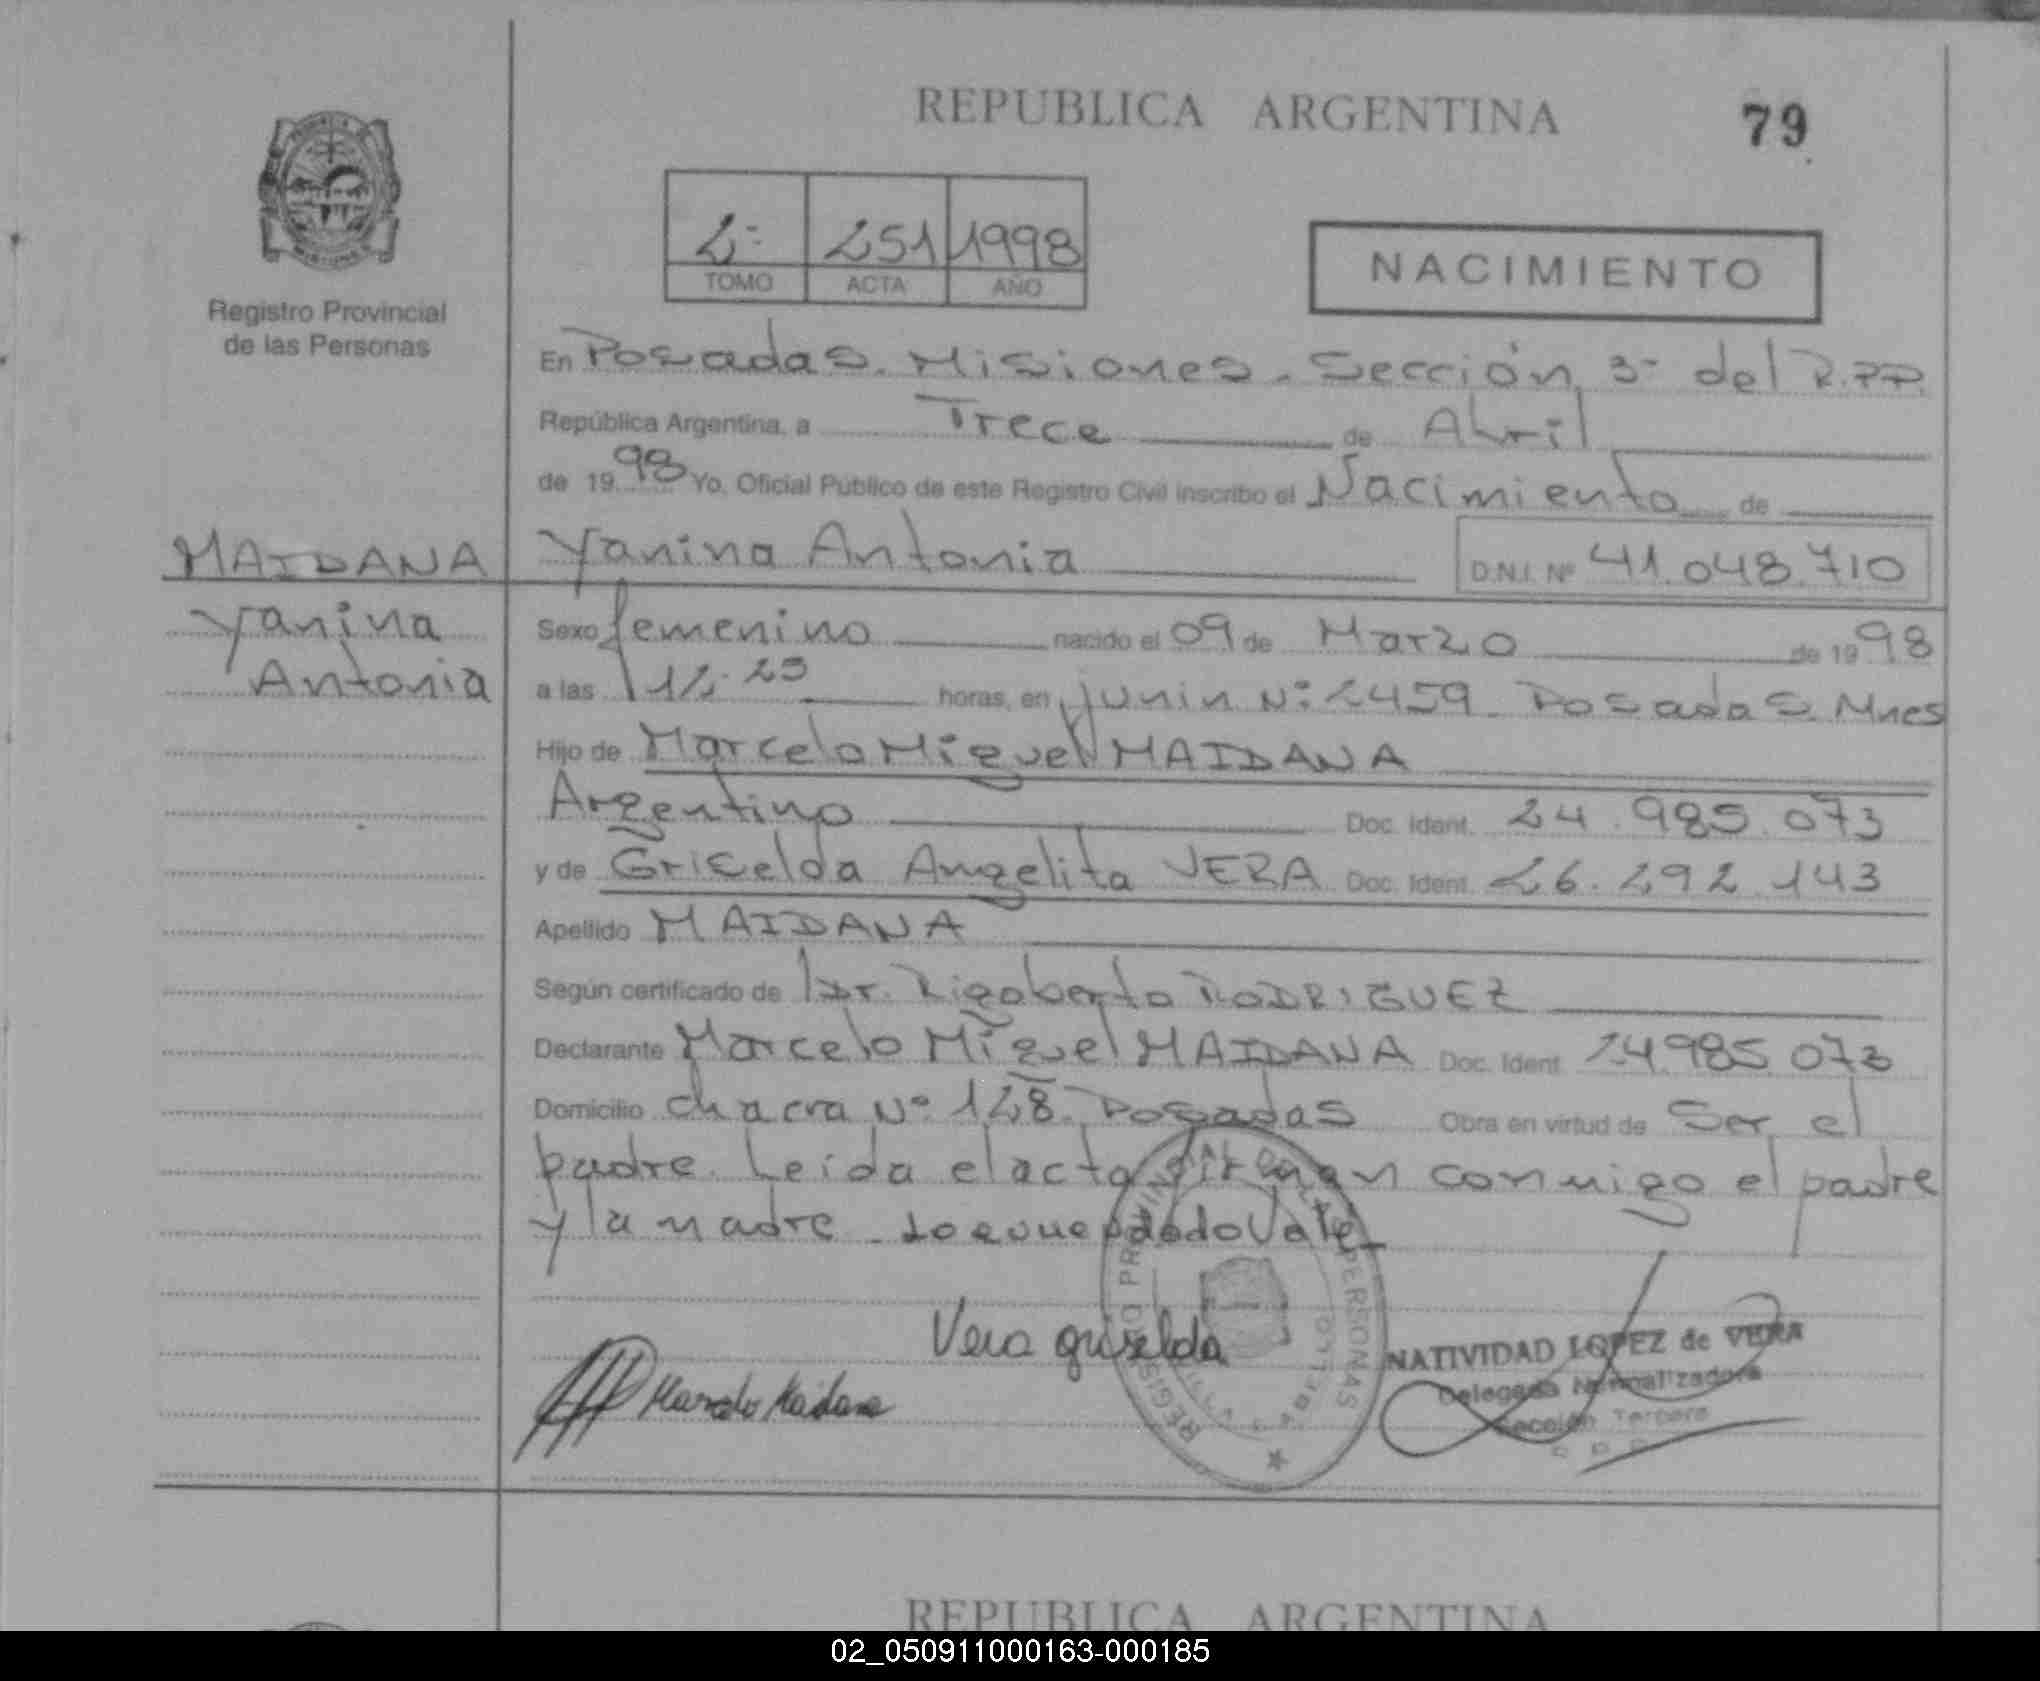 REPUBLICA ARGENTINA
79
2º 251 1998
TOMO ACTA AÑO
NACIMIENTO
Registro Provincial
de las Personas
En Posadas. Misiones. Sección 3º del R.P.P.
República Argentina, a Trece de Abril
de 19 98 Yo, Oficial Público de este Registro Civil inscribo el Nacimiento de
MAIDANA Yanina Antonia D.N.I. Nº 41.048.710
Yanina Sexo femenino nacido el 09 de Marzo de 19 98
Antonia a las 12:25 horas, en junin Nº 2459 Posadas. Mnes
Hijo de Marcelo Miguel MAIDANA
Argentino Doc. Ident. 24.985.073
y de Griselda Angelita VERA Doc. Ident. 26.292.143
Apellido MAIDANA
Según certificado de Dr. Rigoberto RODRIGUEZ
Declarante Marcelo Miguel MAIDANA Doc. Ident. 24985.073
Domicilio chacra Nº 128 Posadas Obra en virtud de Ser el
padre. Leida el acta firman conmigo el padre
y la madre Vale
Vera griselda
Marcelo Maidana
NATIVIDAD LOPEZ de VERA
Delegada Normalizadora
Sección Tercera
REGISTRO PROVINCIAL DE LAS PERSONAS
REPUBLICA ARGENTINA
02_050911000163-000185